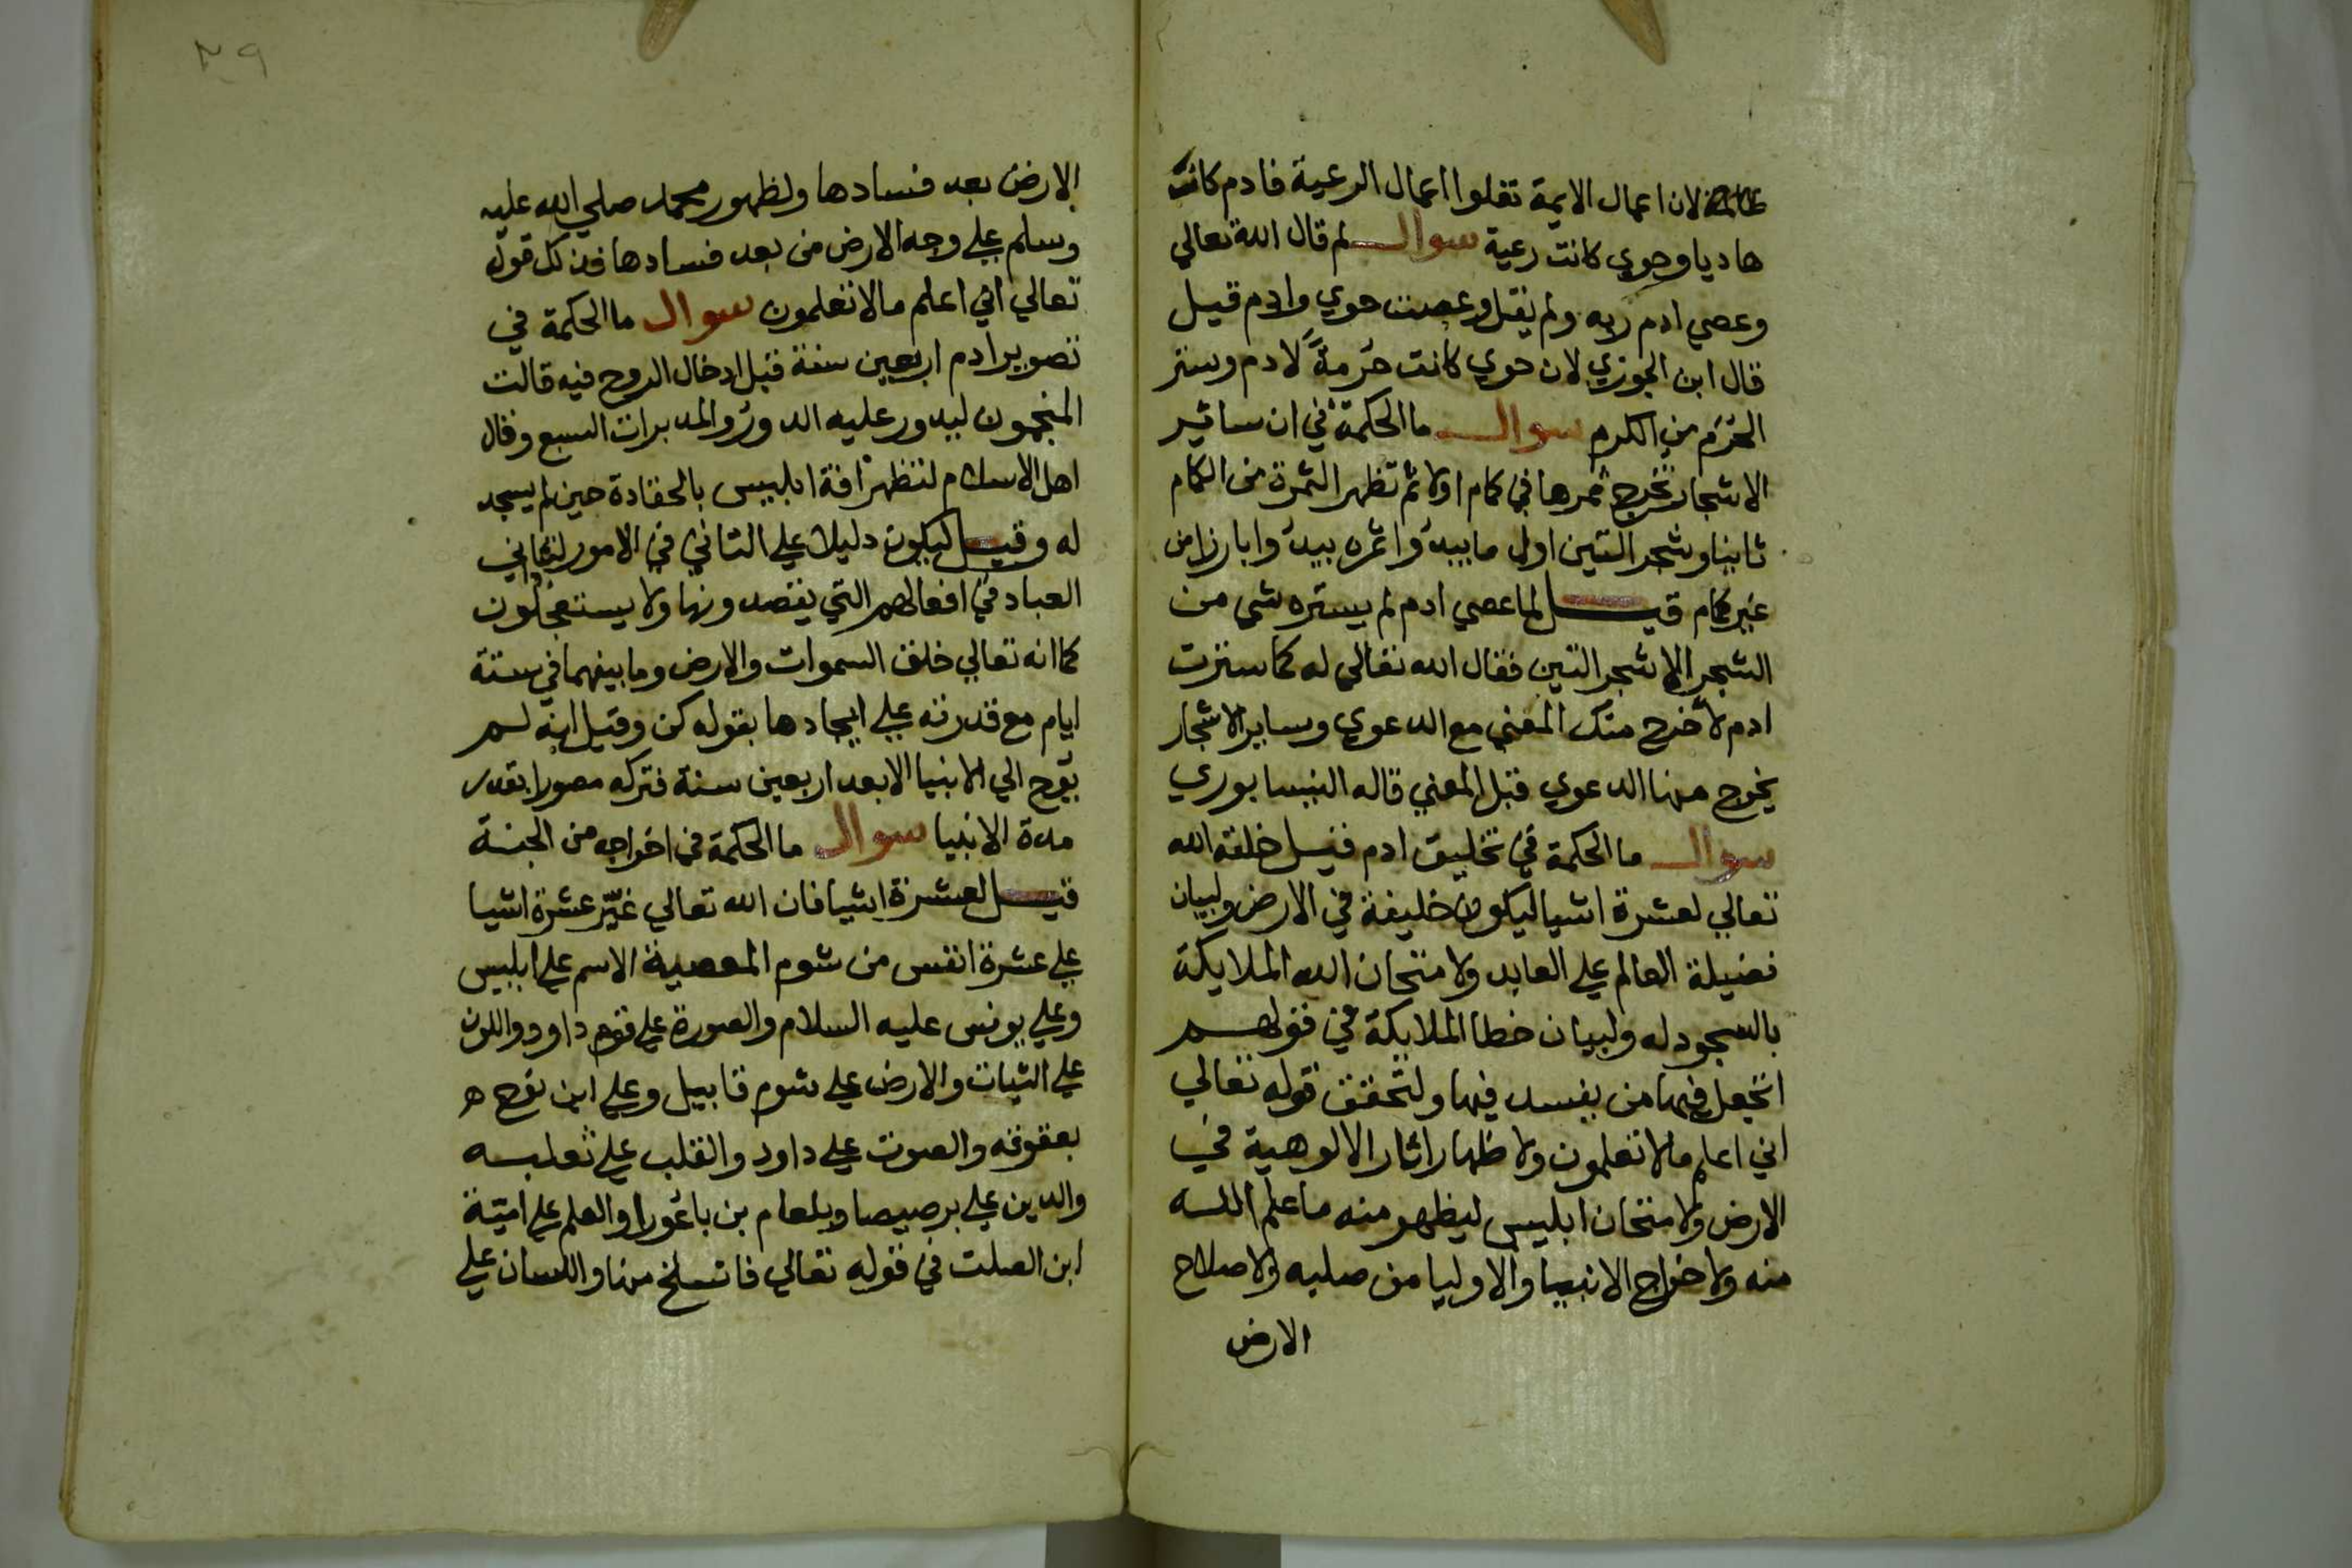 لان اعمال الايمة تعلوا اعمال الرعية فادم كانت
هاديا وحوي كانت رعية سوال لم قال الله تعالي
وعصي ادم ربه ولم يقل وعصت حوي وادم قيل
قال ابن الجوزي لان حوي كانت حُرمةً لادم وستر
الحُرَم من الكرم سوال ما الحكمة في ان سائير
الاشجار تخرج ثمرها في كمام اولا ثم تظهر الثمرة من الكمام
ثانيا وشجر التين اول ما يبدوا ثمره يبدوا بارزا من
غير كمام قيل لما عصي ادم لم يستره شي من
الشجر الا شجر التين فقال الله تعالي له كما سترت
ادم لاخرج منك المعني مع الدعوي وساير الاشجار
يخرج منها الدعوي قبل المعني قاله النيسابوري
سوال ما الحكمة في تخليق ادم قيل خلقه الله
تعالي لعشرة اشيا ليكون خليفة في الارض ولبيان
فضيلة العالم علي العابد ولامتحان الله الملايكة
بالسجود له ولبيان خطا الملايكة في قولهم
اتجعل فيها من يفسد فيها ولتحقق قوله تعالي
اني اعلم مالا تعلمون ولاظهار اثار الالوهية في
الارض ولامتحان ابليس ليظهر منه ما علم الله
منه ولاخراج الانبيا والاوليا من صلبه ولاصلاح
الارض
٣٩
الارض بعد فسادها ولظهور محمد صلي الله عليه
وسلم علي وجه الارض من بعد فسادها فذلك قوله
تعالي اني اعلم مالا تعلمون سوال ما الحكمة في
تصوير ادم اربعين سنة قبل ادخال الروح فيه قالت
المنجمون ليدور عليه الدور والمدبرات السبع وقال
اهل الاسلام لتظهر افة ابليس بالحقادة حين لم يسجد
له وقيل ليكون دليلا علي التاني في الامور ليتاني
العباد في افعالهم التي يقصدونها ولا يستعجلون
كما انه تعالي خلق السموات والارض وما بينهما في ستة
ايام مع قدرته علي ايجادها بقوله كن وقيل انه لم
يوح الي الانبيا الا بعد اربعين سنة فتركه مصورا بقدر
مدة الانبيا سوال ما الحكمة في اخراجه من الجنة
قيل لعشرة اشيا فان الله تعالي غيّر عشرة اشيا
علي عشرة انفس من شوم المعصية الاسم علي ابليس
وعلي يونس عليه السلام والصورة علي قوم داود واللون
علي الثياب والارض علي شوم قابيل وعلي ابن نوح
بعقوقه والصوت علي داود والقلب علي ثعلبه
والدين علي برصيصا وبلعام بن باعورا والعلم علي اميّة
ابن الصلت في قوله تعالي فانسلخ منها واللسان علي